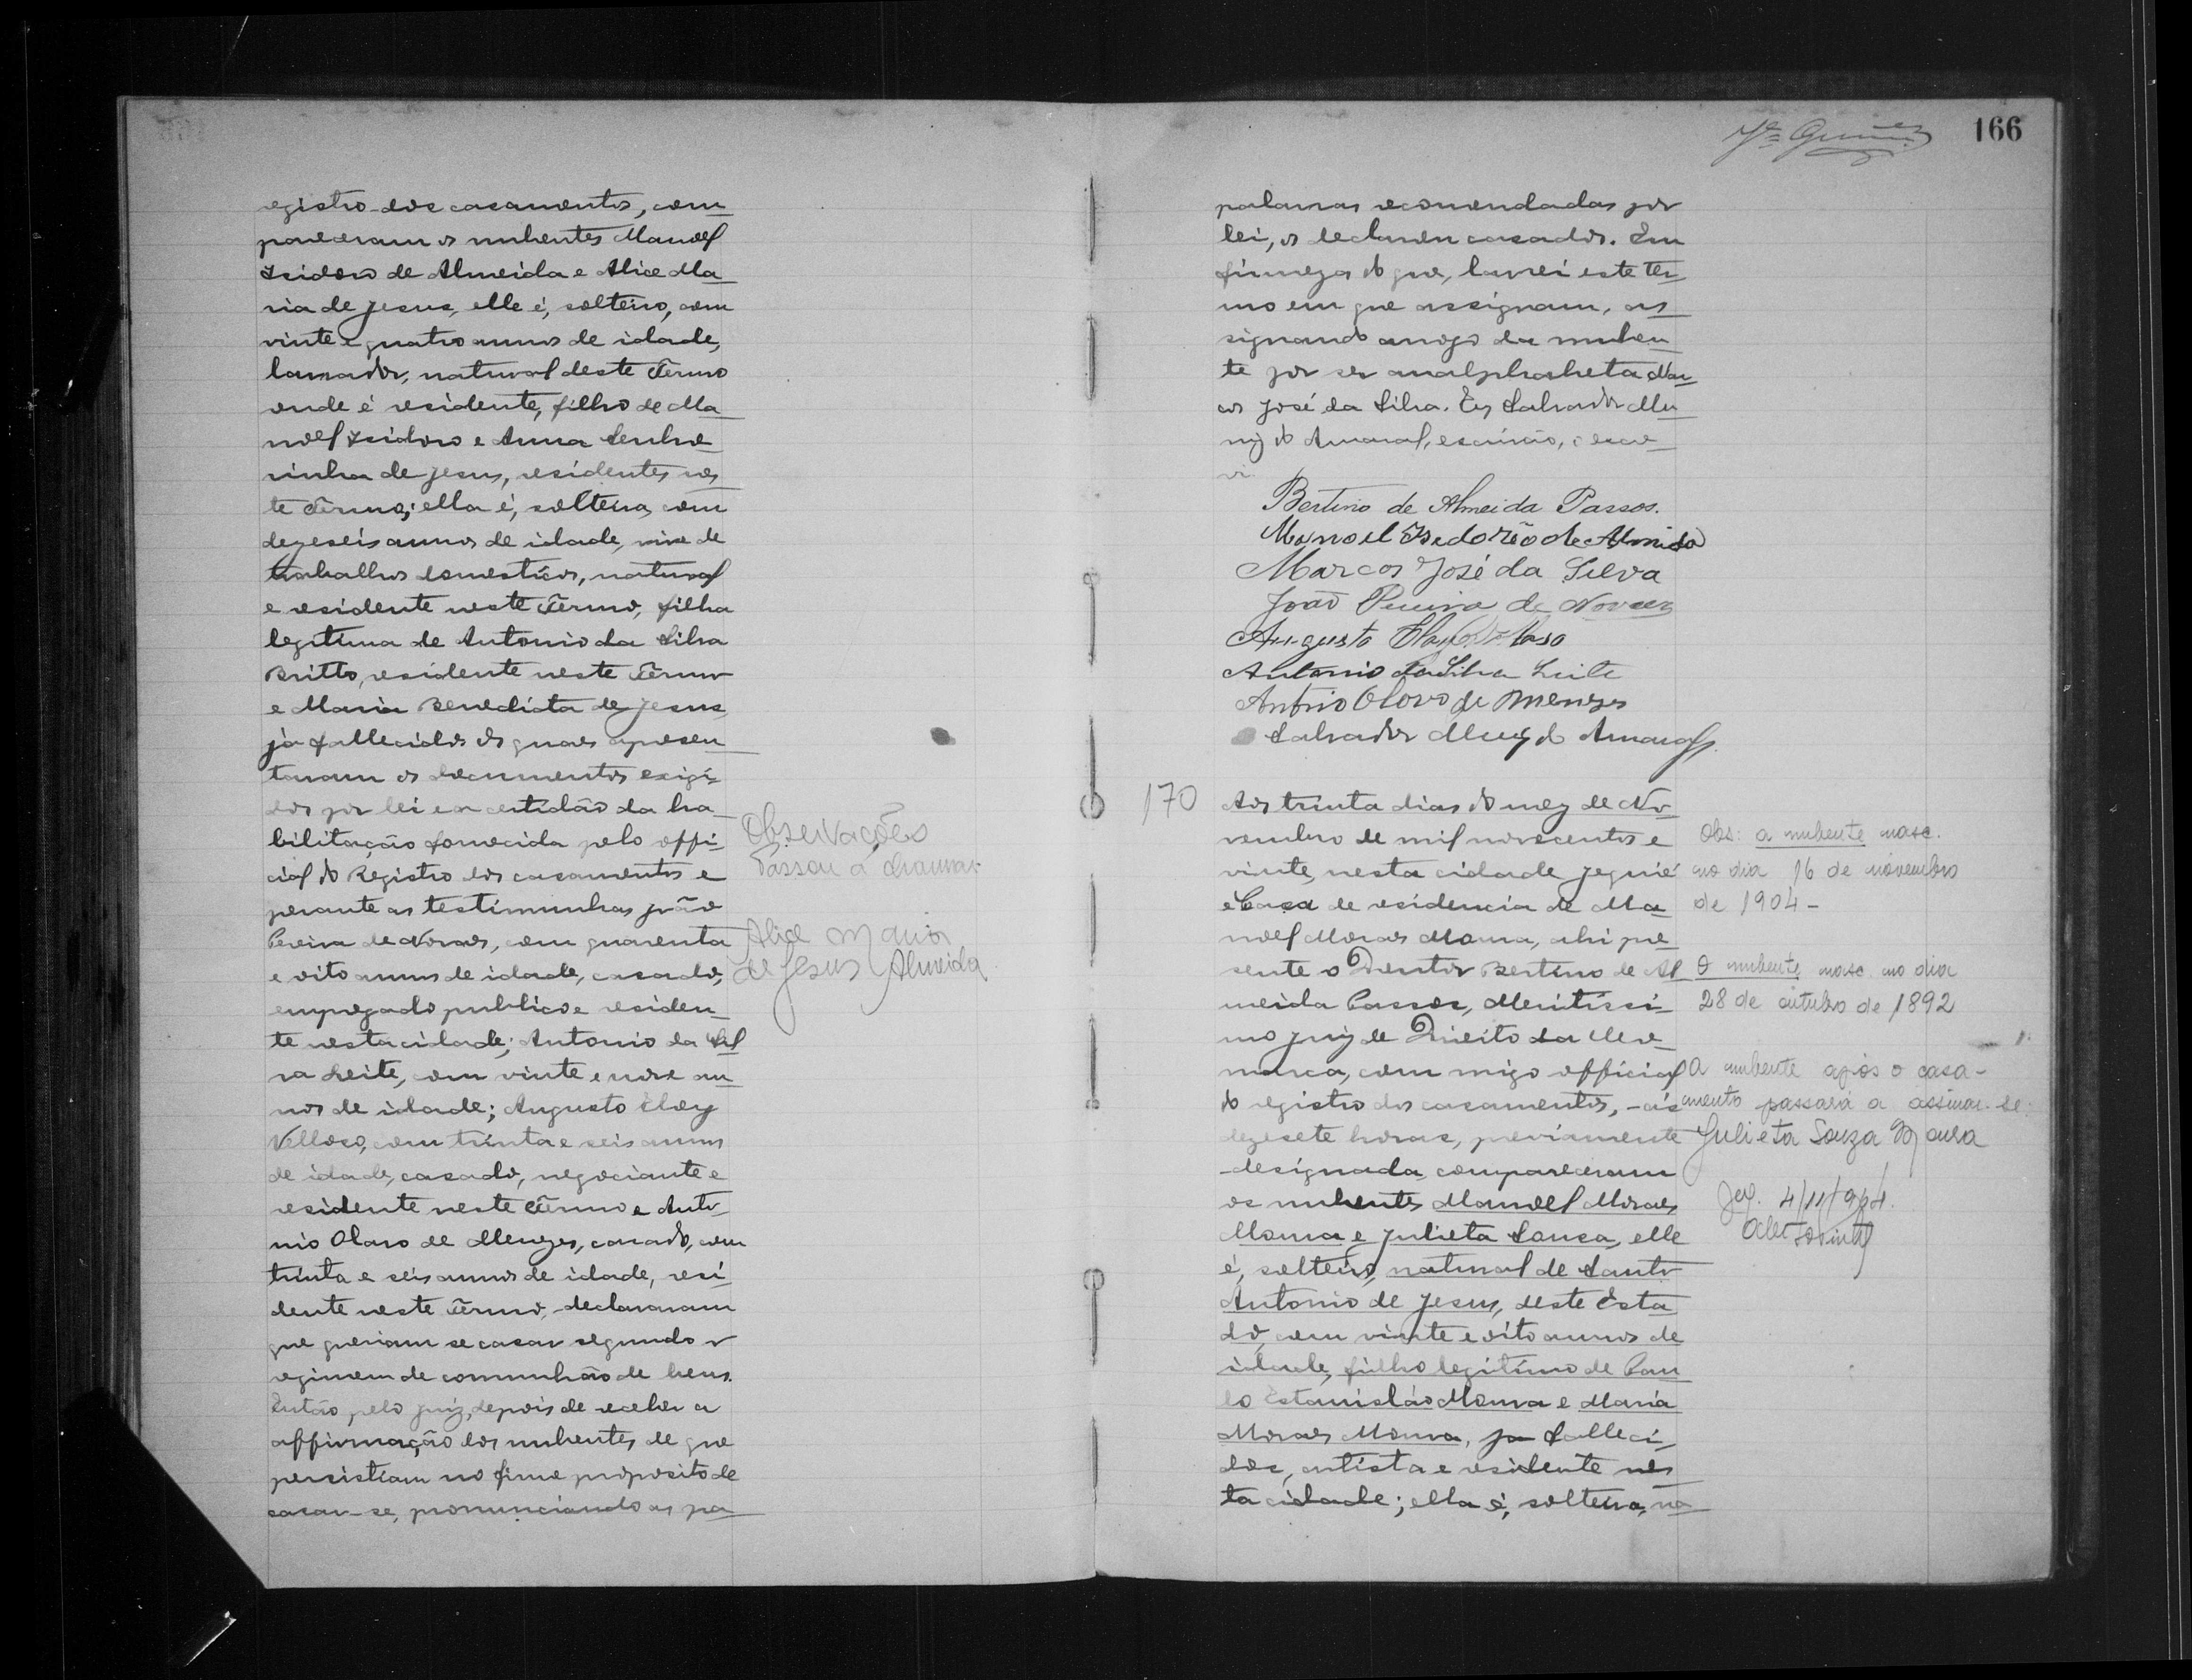 registro dos casamentos, com
pareceram os nubentes Manoel
Izidoro de Almeida e Alice Ma
ria de Jesus, elle é, solteiro, com
vinte e quatro annos de idade,
lavrador, natural deste Termo
onde é residente, filho de Ma
noel Izidoro e Anna Senho
rinha de Jesus, residentes nes
te Termo; ella é, solteira, com
dezeseis annos de idade, vive de
trabalhos domesticos, natural
e residente neste Termo, filha
legitima de Antonio da Silva
Britto, residente neste Termo
e Maria Benedicta de Jesus,
já fallecidos os quaes apresen
taram os documentos exigi
dos por lei e a certidão da ha
bilitação fornecida pelo offi
cial do Registro dos casamentos e
perante as testimunhas João
Pereira de Novaes, com quarenta
e oito annos de idade, casado,
empregado publico e residen
te nesta cidade; Antonio da Sil
va Leite, com vinte e nove an
nos de idade; Augusto Eloy
Velloso, com trinta e seis annos
de idade, casado, negociante e
residente neste Termo e Anto
nio Olavo de Menezes, casado, com
trinta e seis annos de idade, resi
dente neste Termo, declararam
que queriam se casar segundo o
regimem de communhão de bens.
Então pelo juiz, depois de receber a
affirmação dos nubentes de que
persistiam no firme proposito de
casar-se, pronunciando as pa
Observações
Passou a chamar
Alice Maria
de Jesus Almeida
166
palavras recomendadas por
lei, os declarou casados. Em
firmeza do que, lavrei este ter
mo em que assignam, as
signando arogo da nuben
te por ser analphabeta Mar
cos José da Silva. Eu Salvador Mu
niz do Amaral, escrivão, o escre
vi.
Bertino de Almeida Passos.
Manoel Izedorio de Almida
Marcos José da Silva
João Pereira de Novaes
Augusto Eloy Velloso
Antonio da Silva Leite
Antonio Olavo de Menezes
Salvador Muniz do Amaral
170
Aos trinta dias do mez de No
vembro de mil novecentos e
vinte, nesta cidade Jequié
e Casa de residencia de Ma
noel Moraes Moura, ahi pre
sente o Doutor Bertino de Al
meida Passos, Meritissi
mo Juiz de Direito da Com
marca, com migo official
do registro dos casamentos, - ás
dezesete horas, previamente
designada, compareceram
os nubentes Manoel Moraes
Moura e Julieta Sousa, elle
é, solteiro, natural de Santo
Antonio de Jesus, deste Esta
do, com vinte e oito annos de
idade, filho legitimo de Pau
lo Estanisláo Moura e Maria
Moraes Moura, ja falleci
dos, artista e residente nes
ta cidade; ella é, solteira, na
Obs: a nubente nasc.
no dia 16 de novembro
de 1904 -
O nubente nasc. no dia
28 de outubro de 1892
A nubente após o casa-
mento passará a assinar-se:
Julieta Souza Moura
Jeq. 4/11/964.